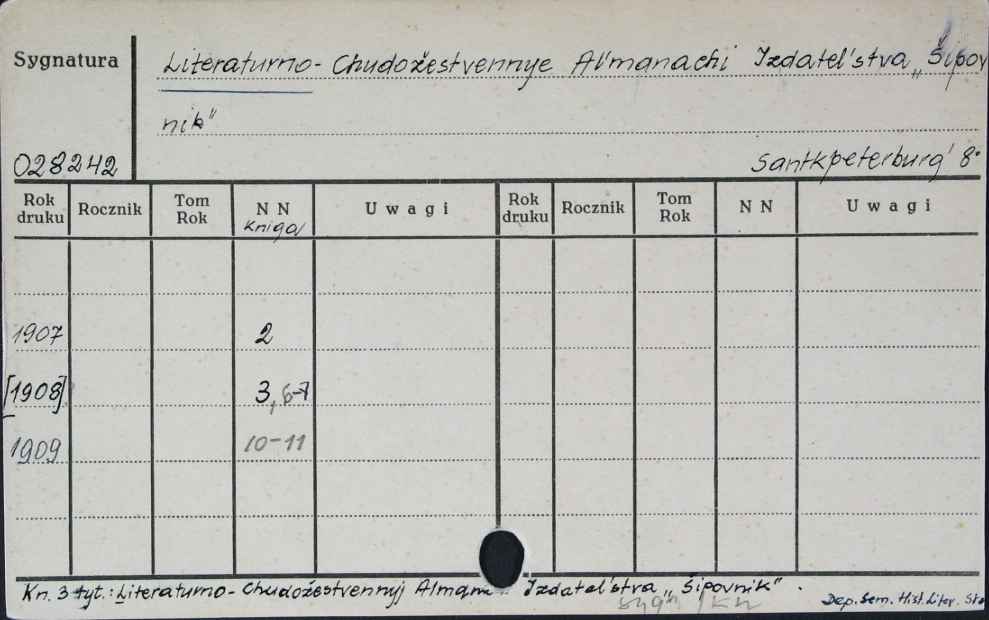 Sygnatura
Literaturno-Chudožestvennye Al'manachi Izdatel'stva „Šipov
nik"
028242
Sanktpeterburg' 8°
Rok druku Rocznik Tom Rok N N Uwagi Rok druku Rocznik Tom Rok N N Uwagi
Kniga/
1907 2
[1908] 3, 6-7
1909 10-11
Kn. 3 tyt.: Literaturno-Chudožestvennyj Almana Izdatel'stva „Šipovnik".
Dep. Sem. Hist. Liter. Sło